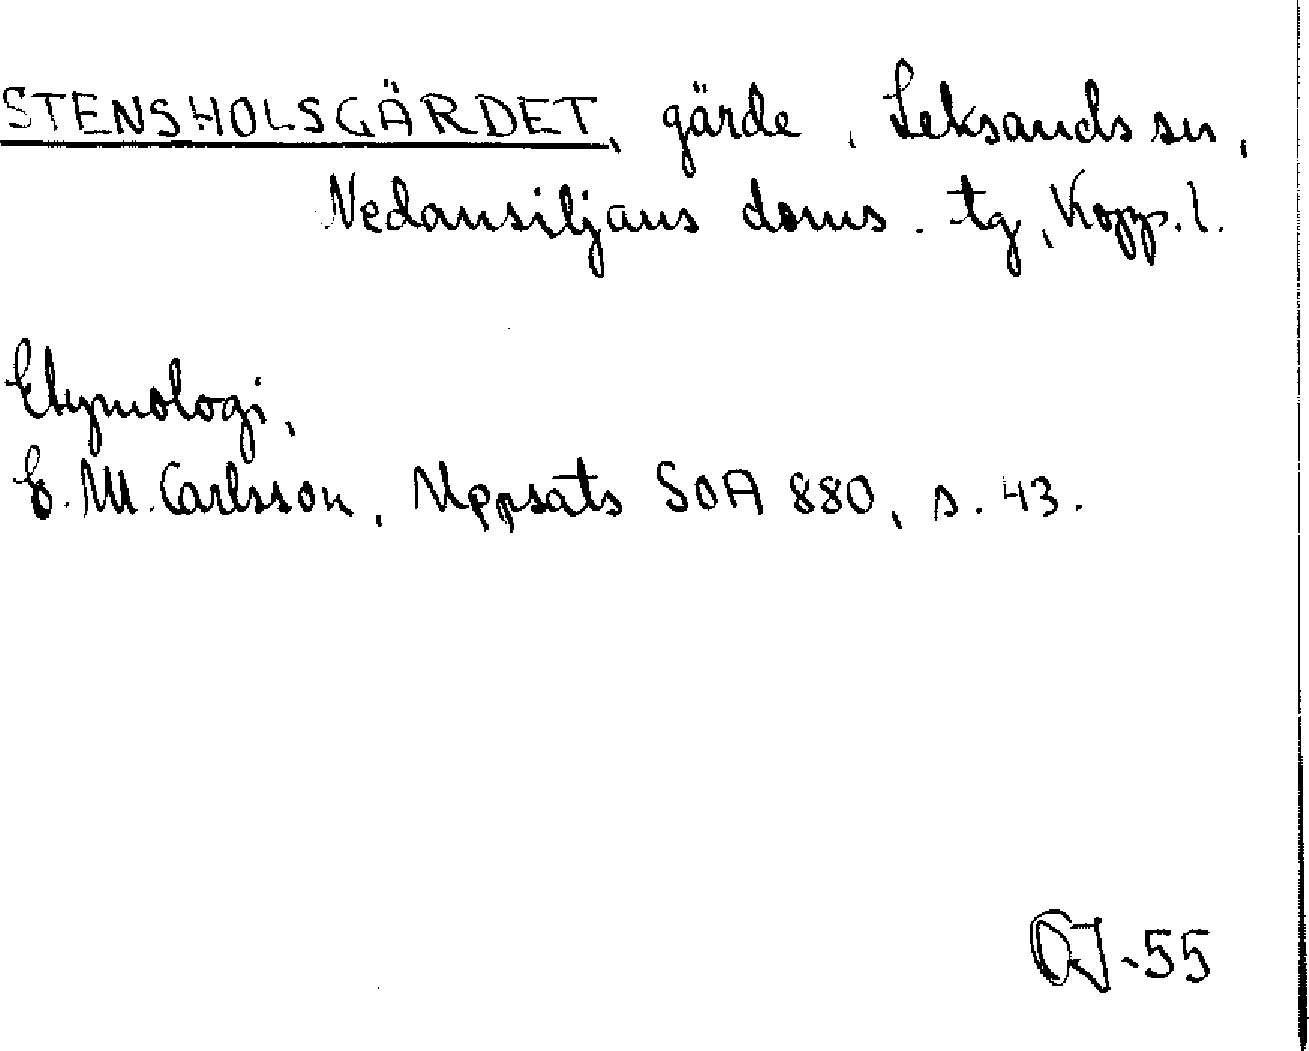 STENSHOLSGÄRDET, gärde, Leksands sn,
Nedansiljans doms. tg, Kopp. l.
Etymologi,
E. M. Carlsson, Uppsats SOA 880, s. 43.
-55